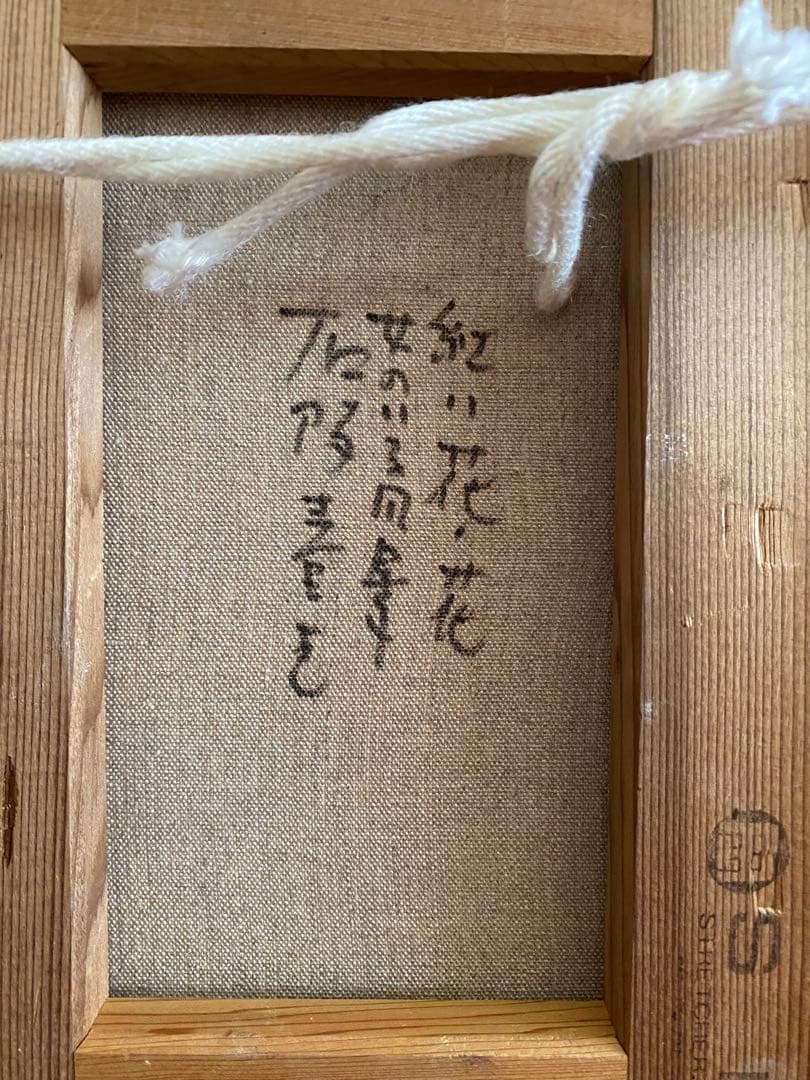 紅い花・花
女のいる風景
石阪春生
S
STRETCHER